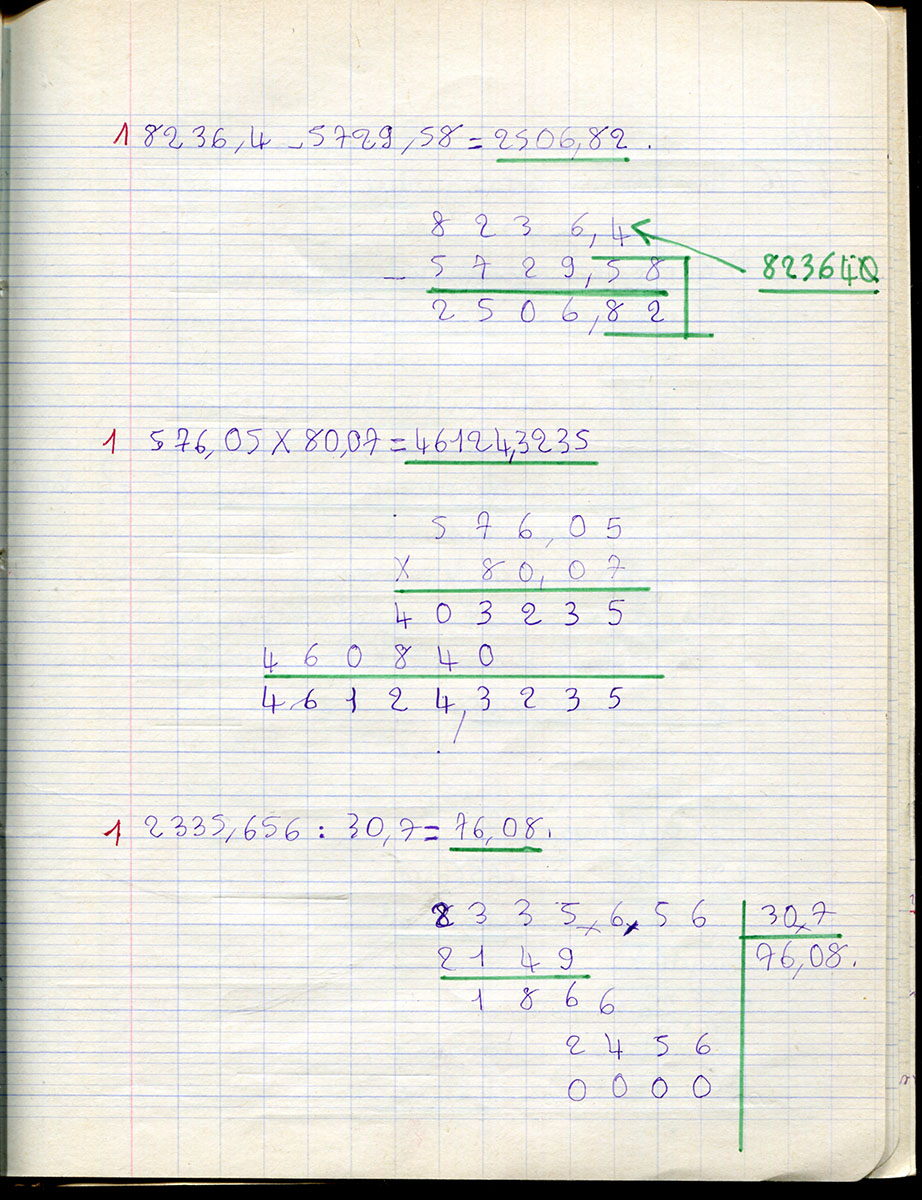 1 8236,4 - 5729,58 = 2506,82.
8 2 3 6,4
- 5 7 2 9,5 8
823640
2 5 0 6,8 2
1 576,05 X 80,07 = 46124,3235
5 7 6,0 5
X 8 0,0 7
4 0 3 2 3 5
4 6 0 8 4 0
4 6 1 2 4,3 2 3 5
1 2335,656 : 30,7 = 76,08.
2 3 3 5,6,5 6 30,7
2 1 4 9 76,08.
1 8 6 6
2 4 5 6
0 0 0 0